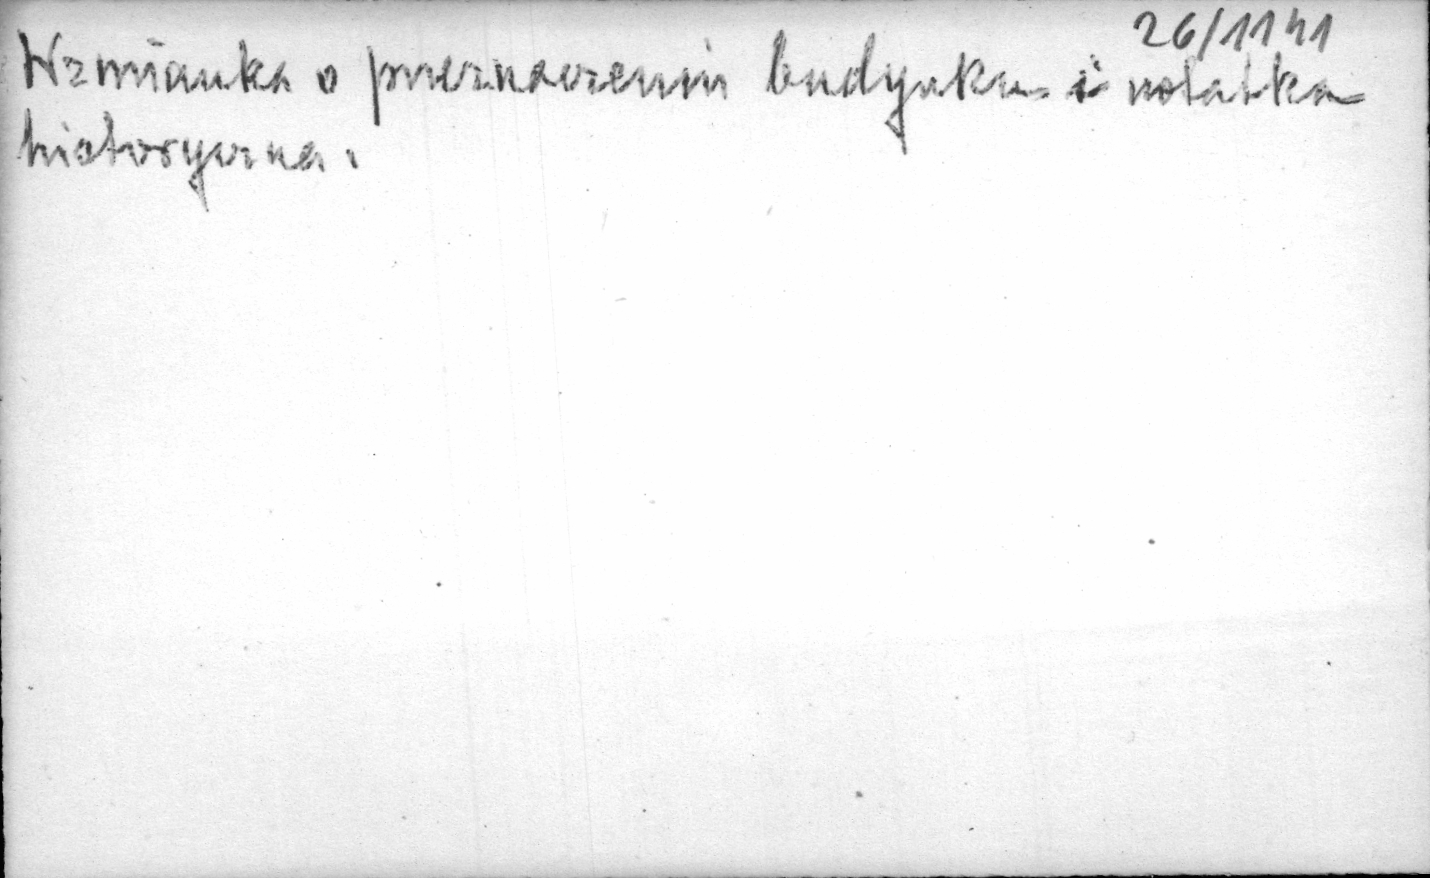 26/1141
Wzmianka o przeznaczeniu budynku i notatka
historyczna.